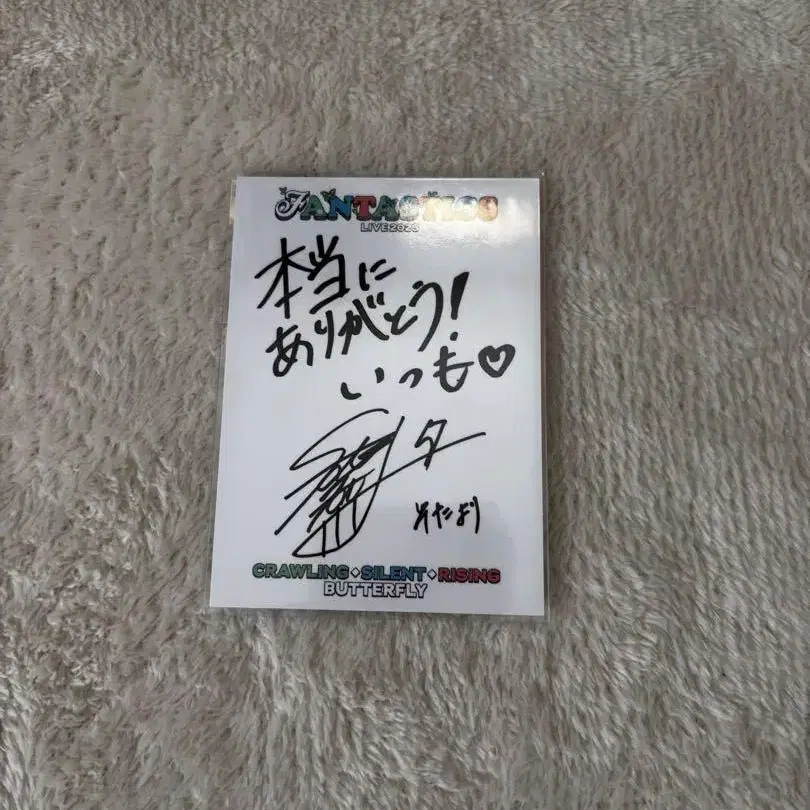 FANTASTICS
本当に
ありがとう!
いつも♡
そたより
CRAWLING◇SILENT◇RISING
BUTTERFLY